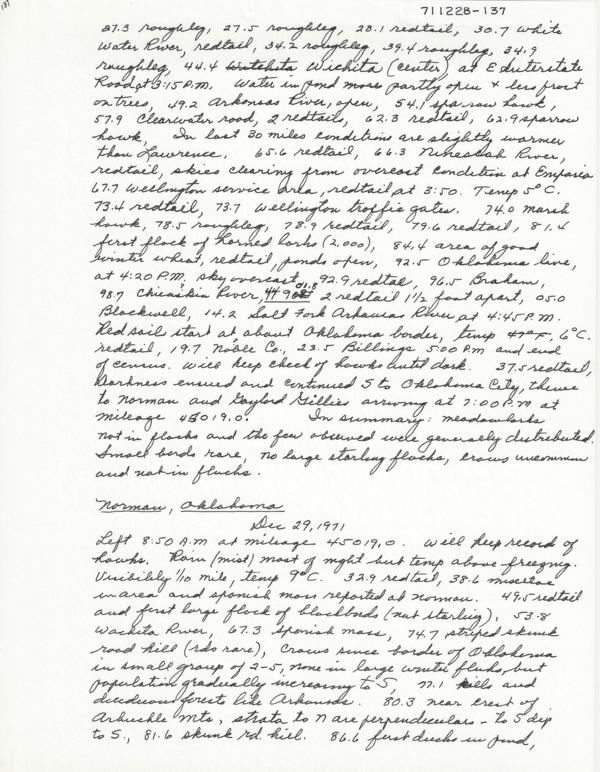 137
711228-137
27.3 roughleg, 27.5 roughleg, 28.1 redtail, 30.7 White
Water River, redtail, 34.2 roughleg, 39.4 roughleg, 34.9
roughleg, 44.4 Wichita (center) at E Interstate
Road at 3:15 P.M. Water in pond more partly open & less frost
on trees, 49.2 Arkansas River, open, 54.1 sparrow hawk,
57.9 Clearwater road, 2 redtails, 62.3 redtail, 62.9 sparrow
hawk, In last 30 miles conditions are slightly warmer
than Lawrence. 65.6 redtail, 66.3 Ninescah River,
redtail, skies clearing from overcast condition at Emporia
67.7 Wellington service area, redtail at 3:50. Temp 5°C.
73.4 redtail, 73.7 Wellington traffic gates. 74.0 marsh
hawk, 78.5 roughleg, 78.9 redtail, 79.6 redtail, 81.4
first flock of horned larks (2,000), 84.4 area of good
winter wheat, redtail, ponds open, 92.5 Oklahoma line,
at 4:20 P.M. sky overcast, 92.9 redtail, 96.5 Braham,
98.7 Chicaskia River, 449 01.8 2 redtail 1½ foot apart, 05.0
Blackwell, 14.2 Salt Fork Arkansas River at 4:45 P.M.
Red soil start at about Oklahoma border, temp 6°C.
redtail, 19.7 Noble Co., 23.5 Billings 5:00 P.M and end
of census. Will keep check of hawks until dark. 37.5 redtail,
Darkness ensued and continued S to Oklahoma City, thence
to Norman and Gaylord Gillies arriving at 7:00 P.M at
mileage 45019.0. In summary: meadowlarks
not in flocks and the few observed were generally distributed.
Small birds rare, no large starling flocks, crows uncommon
and not in flocks.
Norman, Oklahoma
Dec 29, 1971
Left 8:50 A.M at mileage 45019.0. Will keep record of
hawks. Rain (mist) most of night but temp above freezing.
Visibility 1/10 mile, temp 9°C. 32.9 redtail, 38.6 mistletoe
in area and spanish moss reported at Norman. 49.5 redtail
and first large flock of blackbirds (not starling), 53.8
Wachita River, 67.3 spanish moss, 74.7 striped skunk
road kill (rds rare), Crows since border of Oklahoma
in small group of 2-5, none in large winter flocks, but
population gradually increasing to S, 77.1 hills and
deciduous forests like Arkansas. 80.3 near crest of
Arbuckle Mts, strata to N are perpendiculars - to S dip
to S., 81.6 skunk rd. kill. 86.6 first ducks in pond,